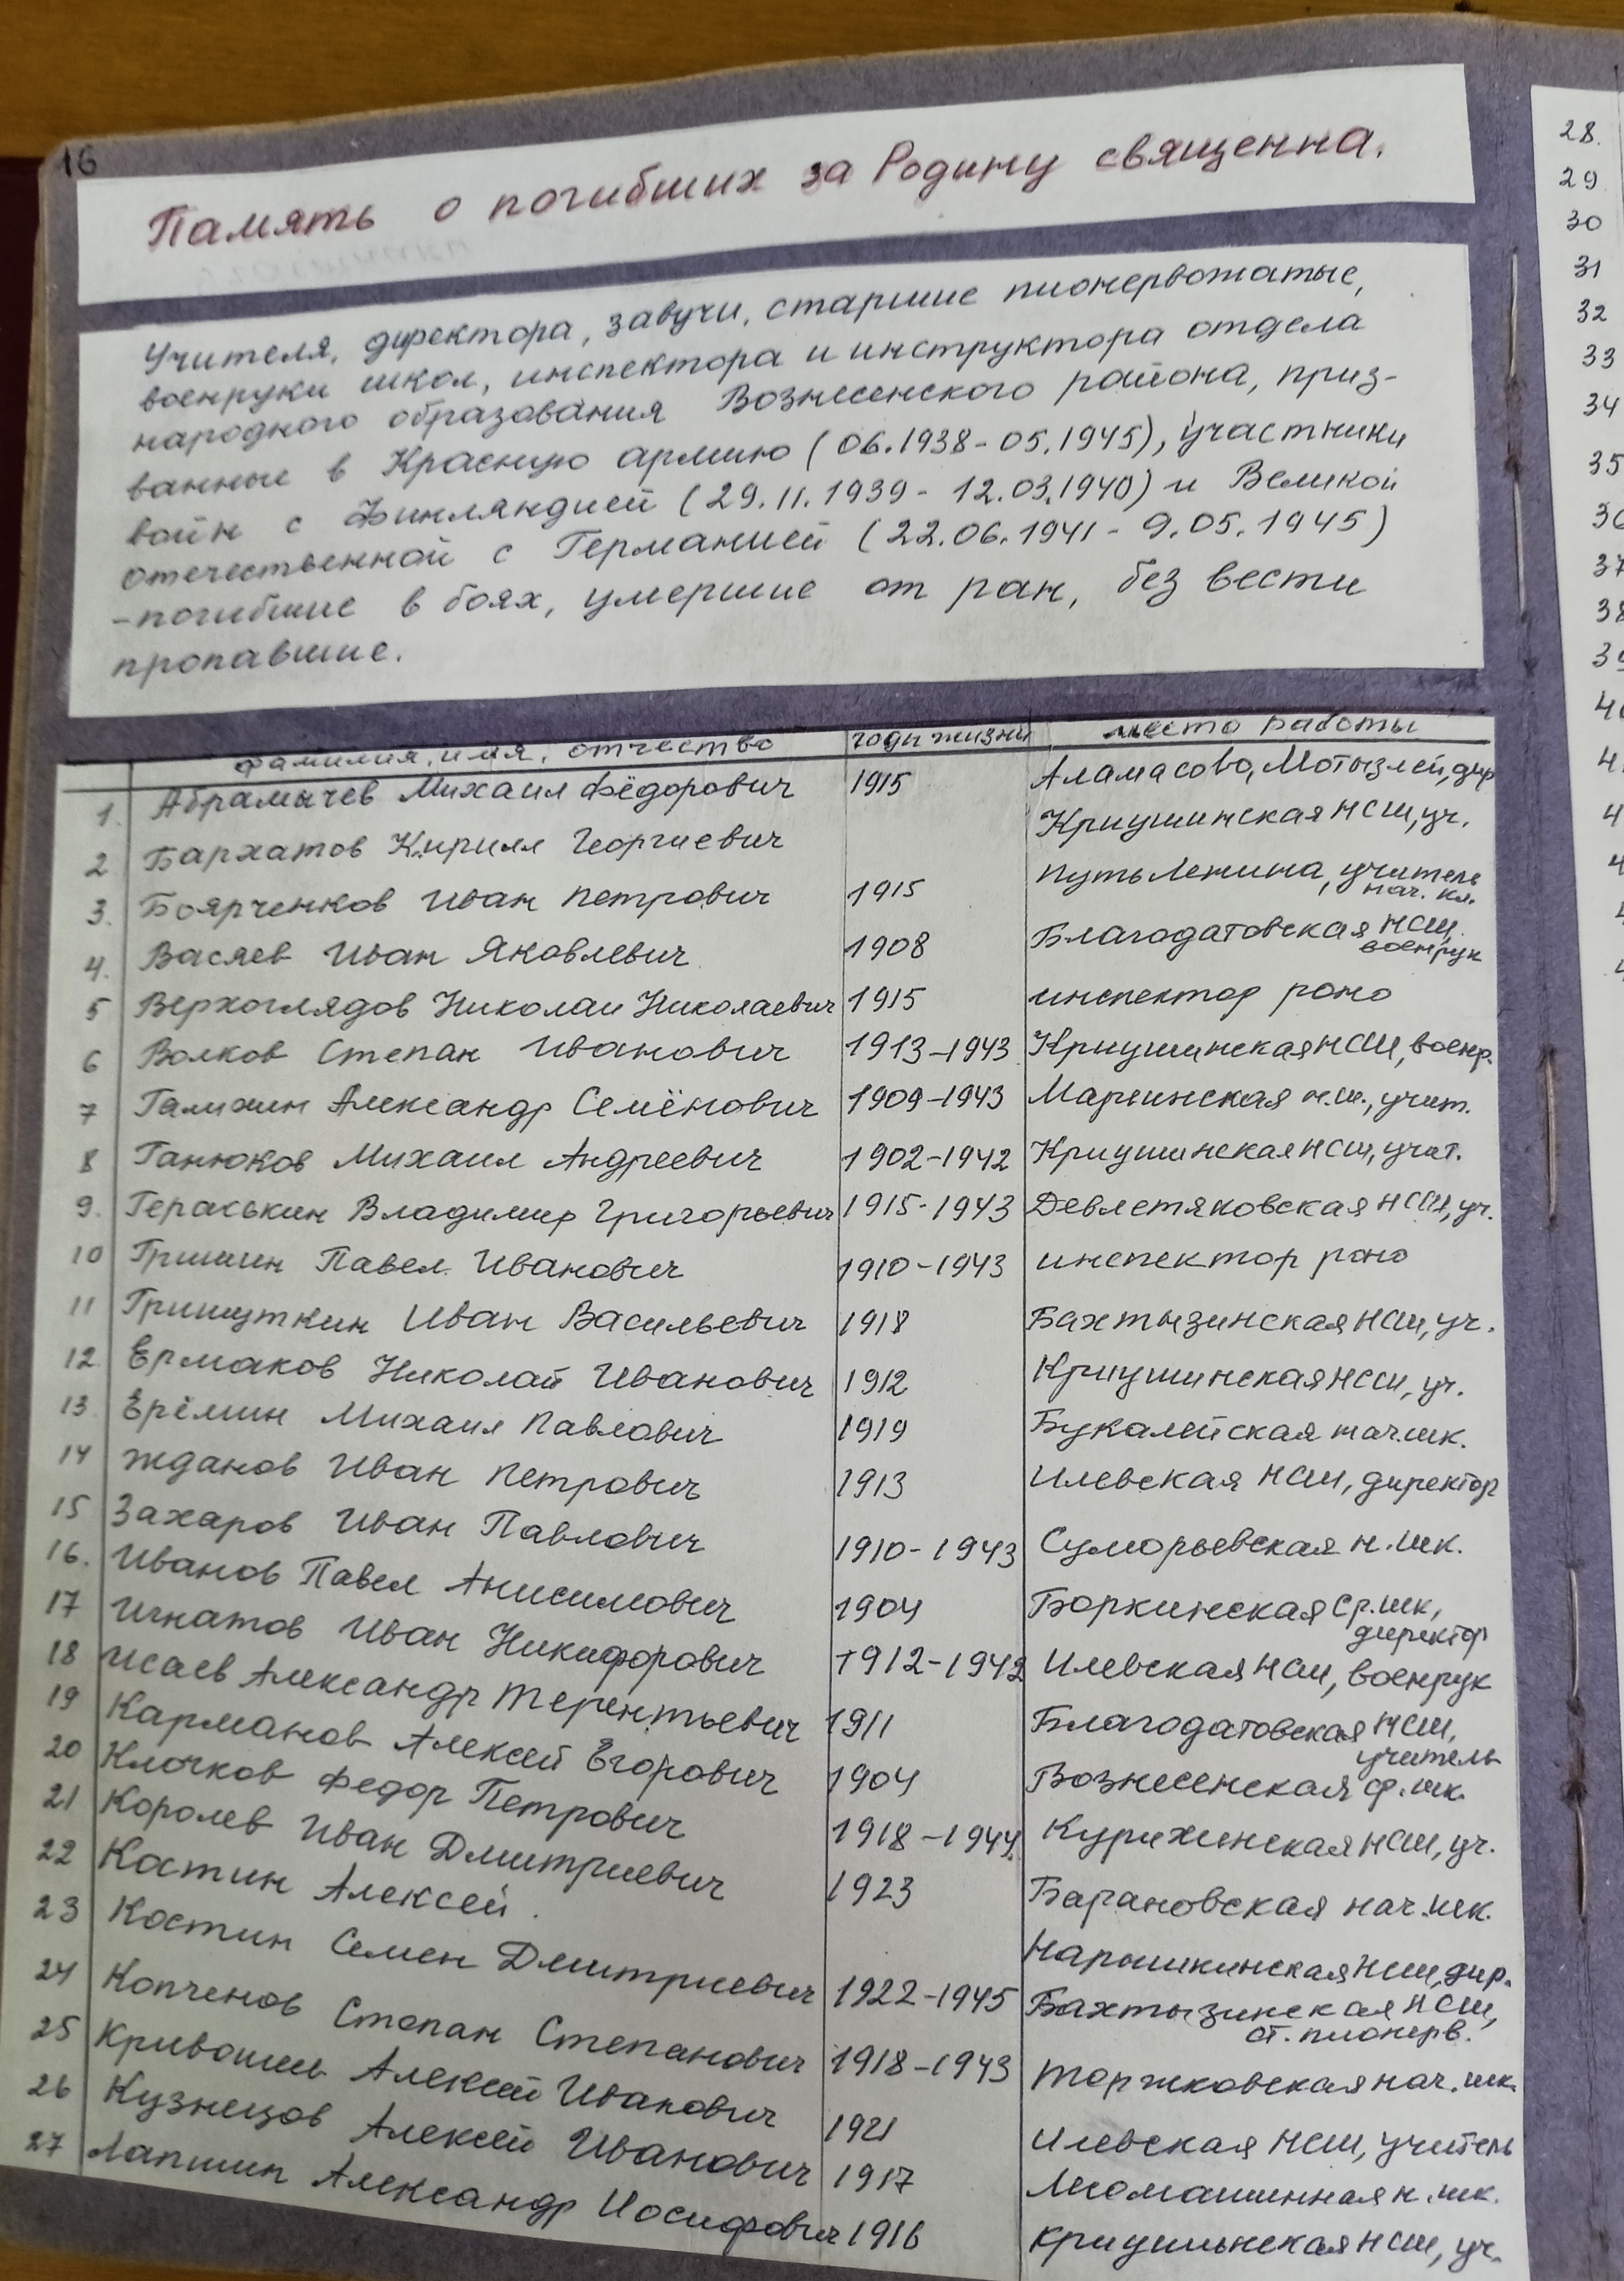 16
Память о погибших за Родину священна.
Учителя, директора, завучи, старшие пионервожатые,
военруки школ, инспектора и инструктора отдела
народного образования Вознесенского района, приз-
ванные в Красную армию (06.1938-05.1945), участники
войн с Финляндией (29.11.1939- 12.03.1940) и Великой
отечественной с Германией (22.06.1941- 9.05.1945)
-погибшие в боях, умершие от ран, без вести
пропавшие.
фамилия, имя, отчество годы жизни место работы
1. Абрамычев Михаил Фёдорович 1915 Аламасово, Мотызлей, дир
2 Бархатов Кирилл Георгиевич Криушинская НСШ, уч.
3. Боярченков Иван Петрович 1915 Путь Ленина, учитель
нач. кл.
4. Васяев Иван Яковлевич 1908 Благодатовская НСШ,
военрук
5 Верхоглядов Николаи Николаевич 1915 инспектор роно
6 Волков Степан Иванович 1913-1943 Криушинская НСШ, военр.
7 Галихин Александр Семёнович 1909-1943 Марьинская н.ш., учит.
8 Ганюков Михаил Андреевич 1902-1942 Криушинская НСШ, учит.
9. Гераськин Владимир Григорьевич 1915-1943 Девлетяковская НСШ, уч.
10 Гришин Павел Иванович 1910-1943 инспектор роно
11 Гришуткин Иван Васильевич 1918 Бахтызинская НСШ, уч.
12. Ермаков Николай Иванович 1912 Криушинская НСШ, уч.
13 Ерёмин Михаил Павлович 1919 Букалейская нач.шк.
14 Жданов Иван Петрович 1913 Илевская НСШ, директор
15 Захаров Иван Павлович 1910-1943 Суморьевская н.шк.
16. Иванов Павел Анисимович 1904 Боркинская ср.шк,
директор
17 Игнатов Иван Никифорович 1912-1942 Илевская НСШ, военрук
18 Исаев Александр Терентьевич 1911 Благодатовская НСШ,
учитель
19 Карманов Алексей Егорович 1904 Вознесенская ср.шк.
20 Клочков Федор Петрович 1918-1944 Курихинская НСШ, уч.
21 Королев Иван Дмитриевич 1923 Барановская нач.шк.
22 Костин Алексей. Нарышкинская НСШ, дир.
23 Костин Семен Дмитриевич 1922-1945 Бахтызинская НСШ,
ст. пионерв.
24 Копченов Степан Степанович 1918-1943 Торжковская нач. шк.
25 Кривошеев Алексей Иванович 1921 Илевская НСШ, учитель
26 Кузнецов Алексей Иванович 1917 Лесомашинная н.шк.
27 Лапшин Александр Иосифович 1916 Криушинская НСШ, уч.
28.
29
30
31
32
33
34
35